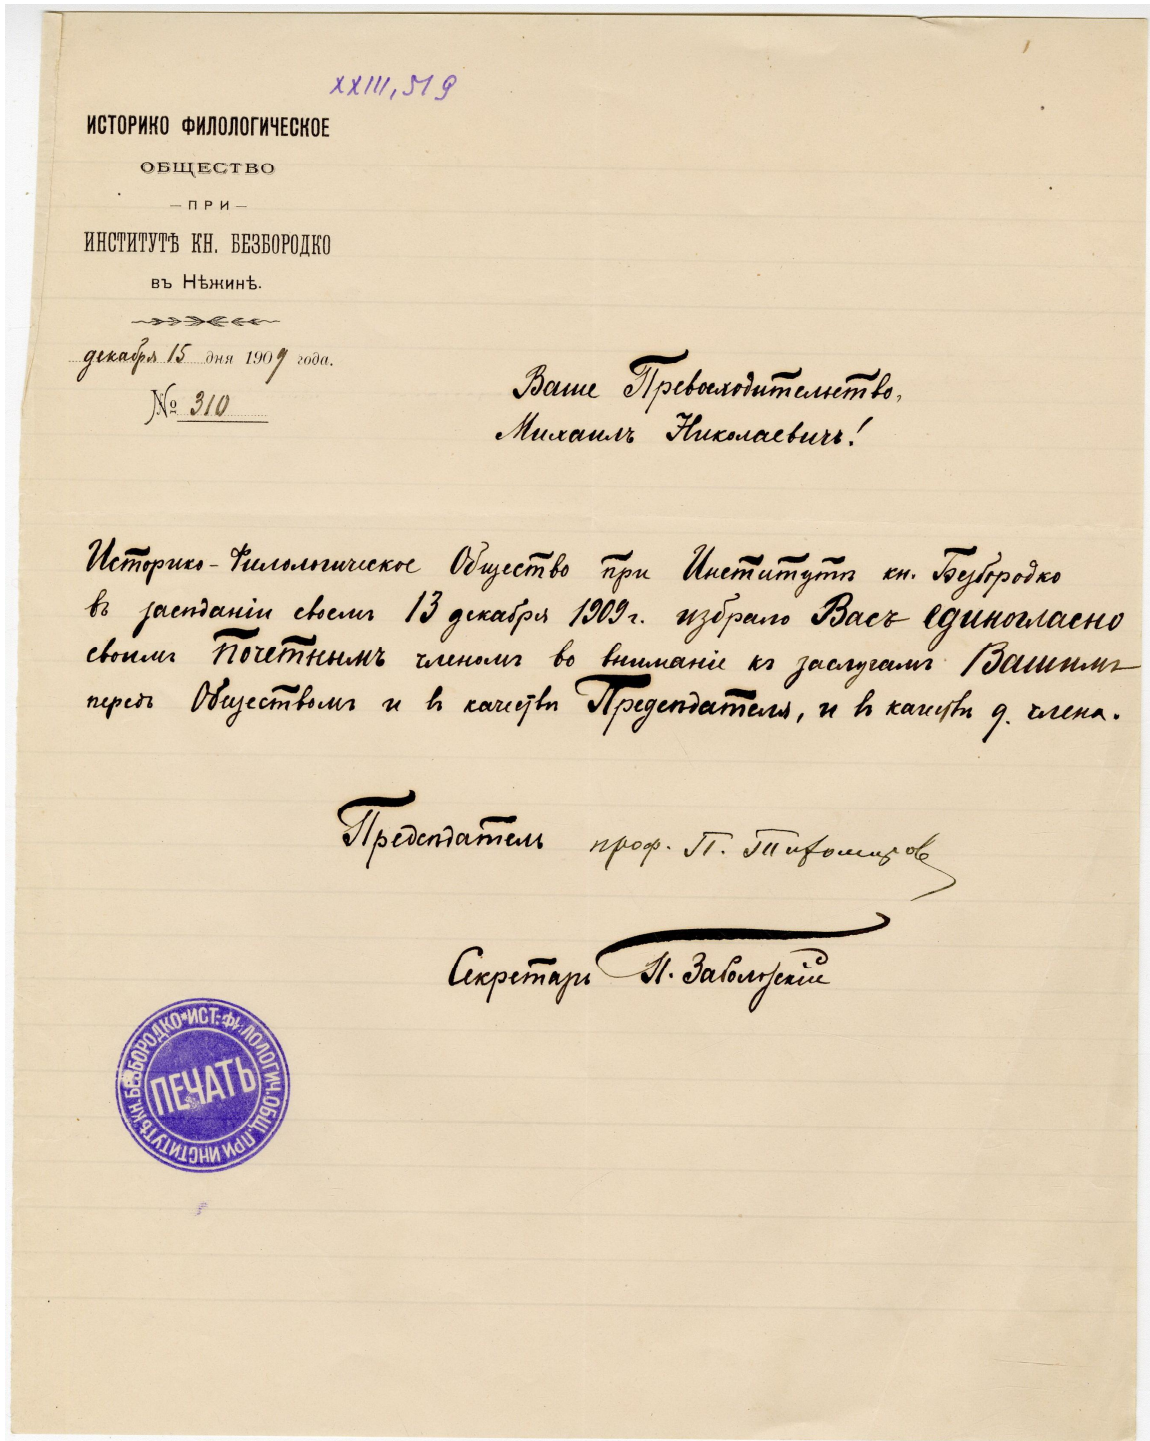 XXIII, 519
ИСТОРИКО ФИЛОЛОГИЧЕСКОЕ
ОБЩЕСТВО
— ПРИ —
ИНСТИТУТѢ КН. БЕЗБОРОДКО
въ Нѣжинѣ.
декабря 15 дня 1909 года.
№ 310
Ваше Превосходительство,
Михаилъ Николаевичъ!
Историко-Филологическое Общество при Институтѣ кн. Безбородко
въ засѣданіи своемъ 13 декабря 1909 г. избрало Васъ единогласно
своимъ Почетнымъ членомъ во вниманіе къ заслугамъ Вашимъ
передъ Обществомъ и въ качествѣ Предсѣдателя, и въ качествѣ д. члена.
Предсѣдатель проф. П. Тихомировъ
Секретарь И. Заболотскій
ИСТ.-ФИЛОЛОГИЧ. ОБЩ. ПРИ ИНСТИТУТѢ КН. БЕЗБОРОДКО
ПЕЧАТЬ